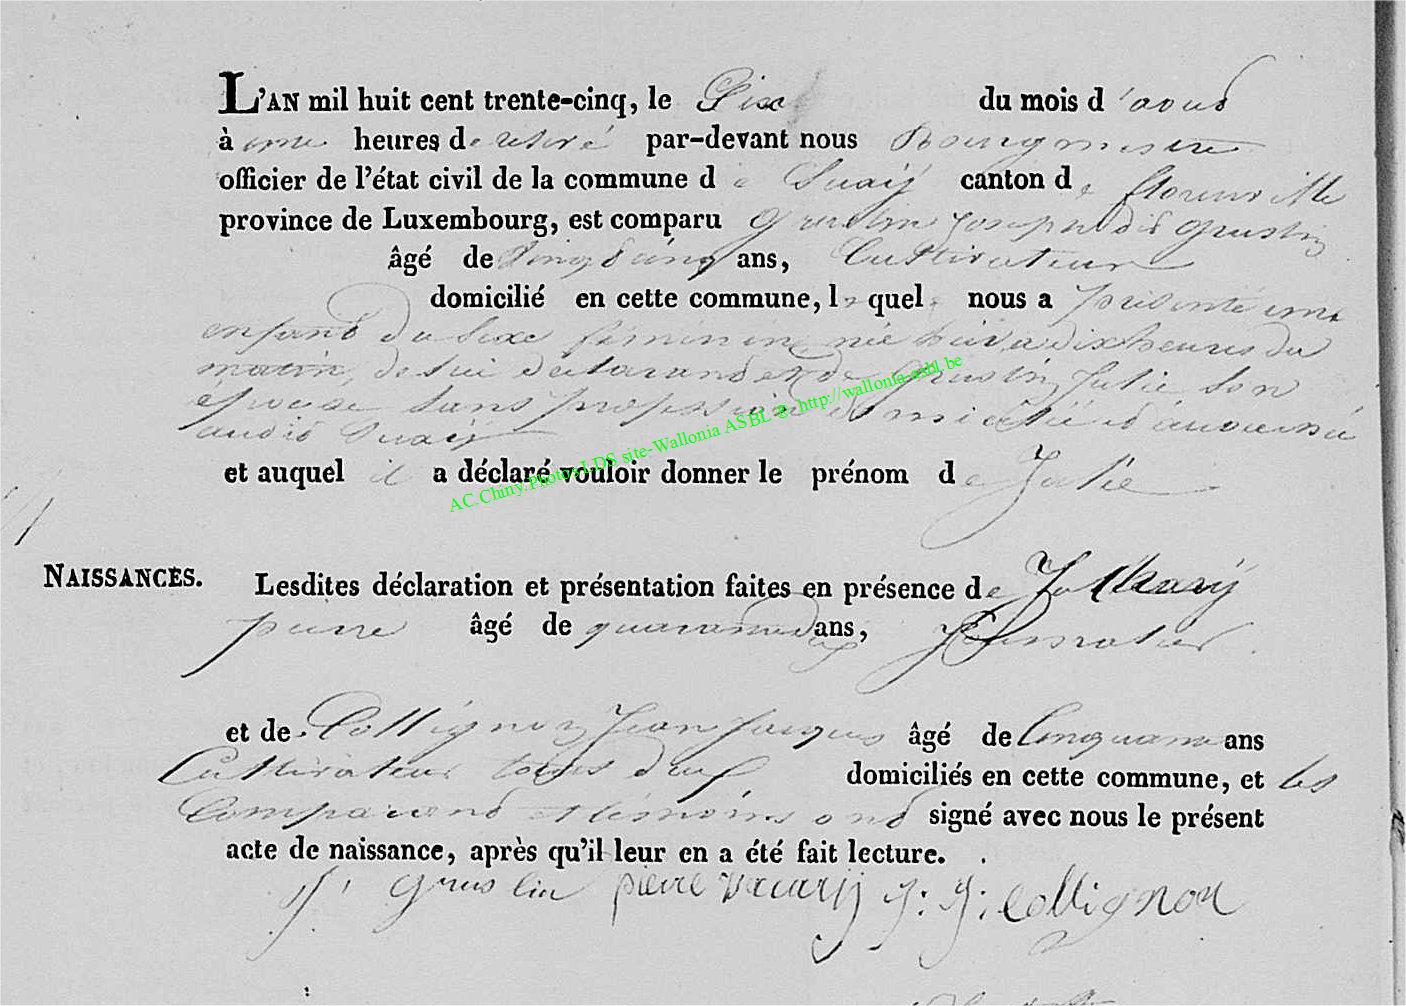 L'AN mil huit cent trente-cinq, le Dix du mois d'aout
à une heures de relevé par-devant nous Bourgmestre
officier de l'état civil de la commune de Suxÿ canton de florenville
province de Luxembourg, est comparu Gruslin Joseph dit Gruslin
âgé de vingt cinq ans, Cultivateur
domicilié en cette commune, lequel nous a présenté une
enfant du sexe féminin née hier a dix heures du
matin, de lui déclarant et de Gruslin Julie son
épouse sans profession domiciliée
audit Suxÿ
et auquel il a déclaré vouloir donner le prénom de Julie
AC.Chiny.Photos LDS site-Wallonia ASBL © http://wallonia-asbl.be
NAISSANCES.
Lesdites déclaration et présentation faites en présence de
pierre âgé de quarante ans,
et de Collignon Jean Jacques âgé de Cinquante ans
Cultivateur tous deux domiciliés en cette commune, et les
Comparant et témoins ont signé avec nous le présent
acte de naissance, après qu'il leur en a été fait lecture.
J. Gruslin pierre J: J: Collignon